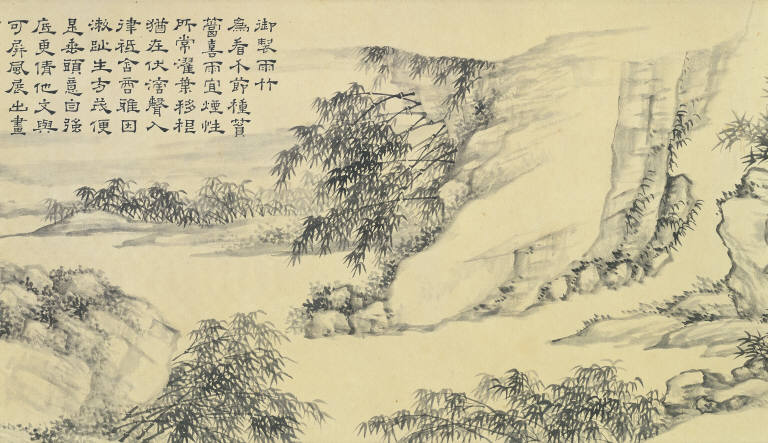 御製雨竹
爲看不節種篔
簹喜雨宜煙性
所常濯葉移相
猶在伏滴聲入
律祗含商雅因
漱趾生方茂便
是垂頭意自強
底更倩他文與
可屏風展出畫